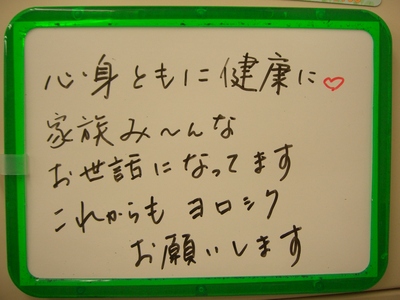 心身ともに健康に♡
家族み〜んな
お世話になってます
これからも ヨロシク
お願いします